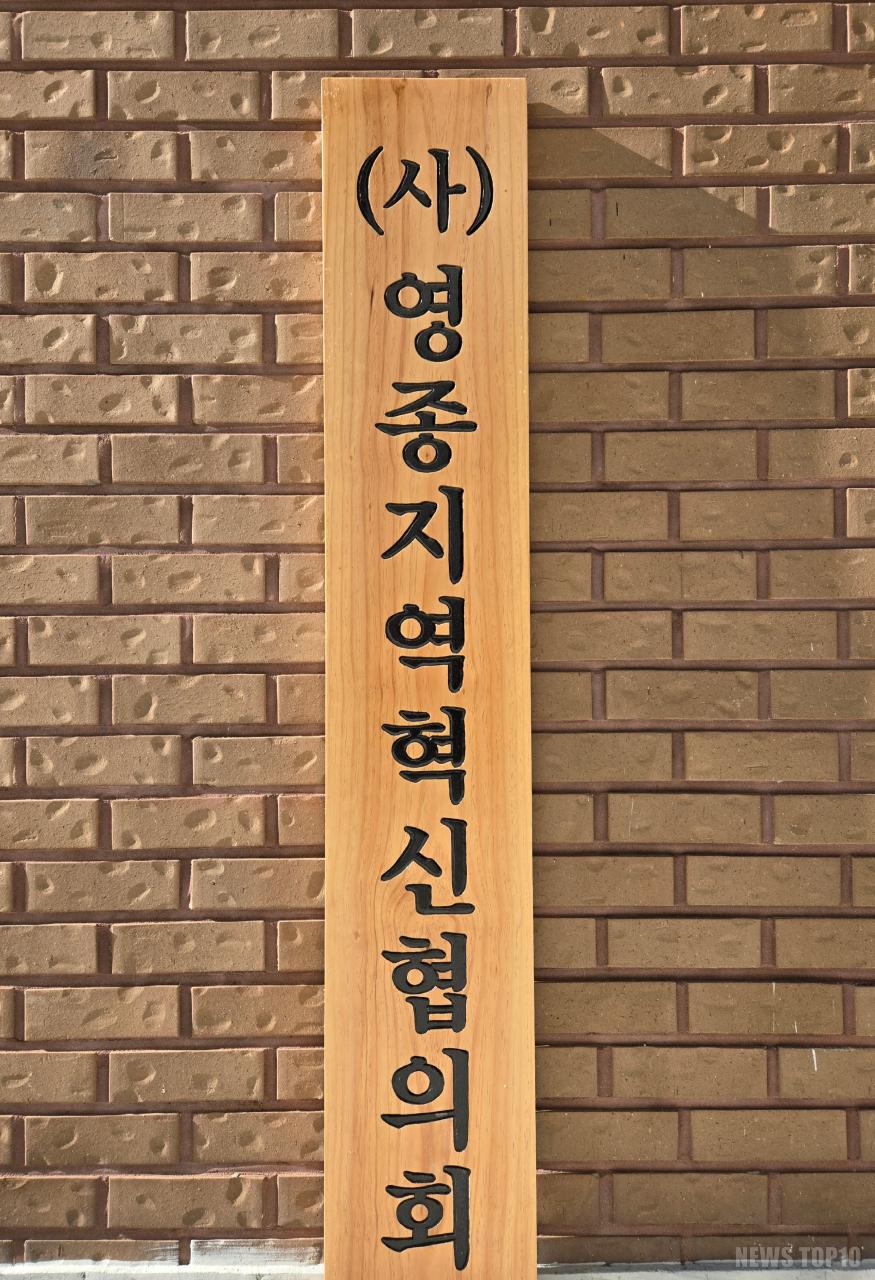 (사)영종지역혁신협의회
NEWS TOP10